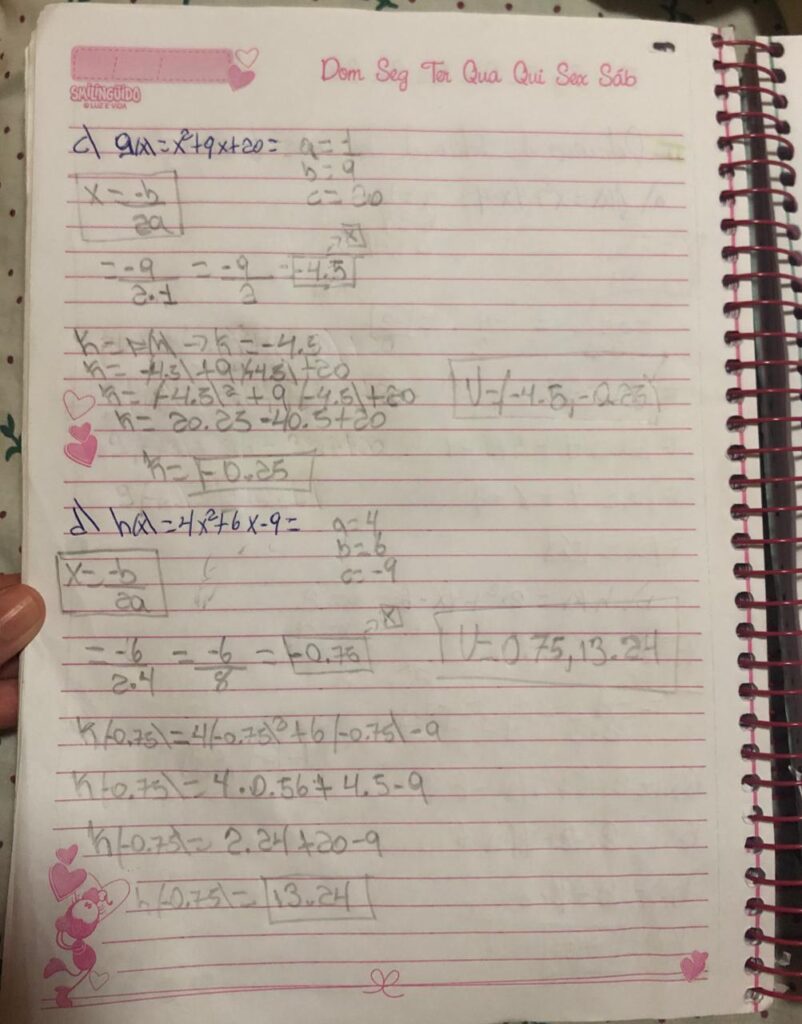 Dom Seg Ter Qua Qui Sex Sáb
SMILINGÜIDO
© LUZ E VIDA
c) g(x) = x²+9x+20 = a = 1
b = 9
c = 20
x = -b/2a
= -9/2·1 = -9/2 = -4.5 → x
k = -4.5
k = -4.5) + 9 (-4.5) + 20
k = (-4.5)² + 9 (-4.5) + 20
V = (-4.5, -0.25)
k = 20.25 - 40.5 + 20
k = -0.25
d) h(x) = 4x²+6x-9 = a = 4
b = 6
c = -9
x = -b/2a
= -6/2.4 = -6/8 = -0.75 → x
V = 0.75, 13.24
k(-0.75) = 4(-0.75)²+6(-0.75)-9
k(-0.75) = 4·0.56+4.5-9
k(-0.75) = 2.24+20-9
h(-0.75) = 13.24